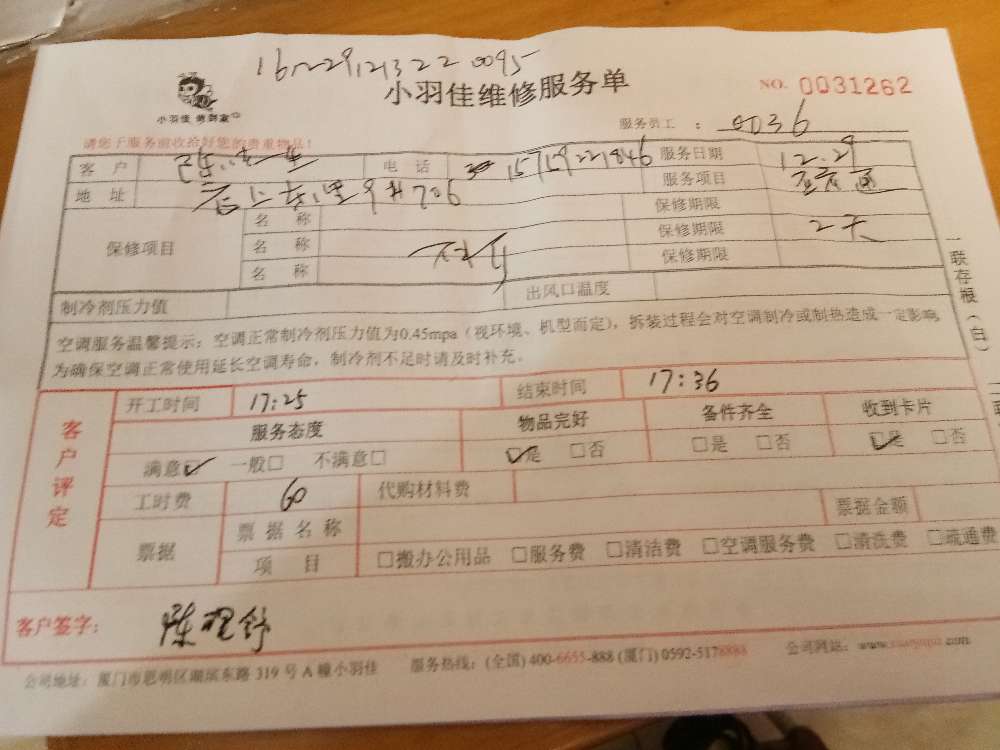 小羽佳维修服务单
NO. 0031262
小羽佳
服务员工： 0036
请您于服务前收拾好您的贵重物品！
客户 电话 服务日期 12.29
地址 服务项目
保修项目 名称 保修期限
名称 保修期限 2天
名称 保修期限
制冷剂压力值 出风口温度
空调服务温馨提示：空调正常制冷剂压力值为0.45mpa（视环境、机型而定），拆装过程会对空调制冷或制热造成一定影响
为确保空调正常使用延长空调寿命，制冷剂不足时请及时补充。
一联存根（白）
客户评定
开工时间 17:25 结束时间 17:36
服务态度 物品完好 备件齐全 收到卡片
满意☑ 一般□ 不满意□ ☑是 □否 □是 □否 ☑是 □否
工时费 60 代购材料费
票据 票据名称 票据金额
项目 □搬办公用品 □服务费 □清洁费 □空调服务费 □清洗费 □疏通费
客户签字：
公司地址：厦门市思明区湖滨东路 319 号 A 幢小羽佳 服务热线：(全国) 400-6655-888 (厦门) 0592-5178888 公司网站：